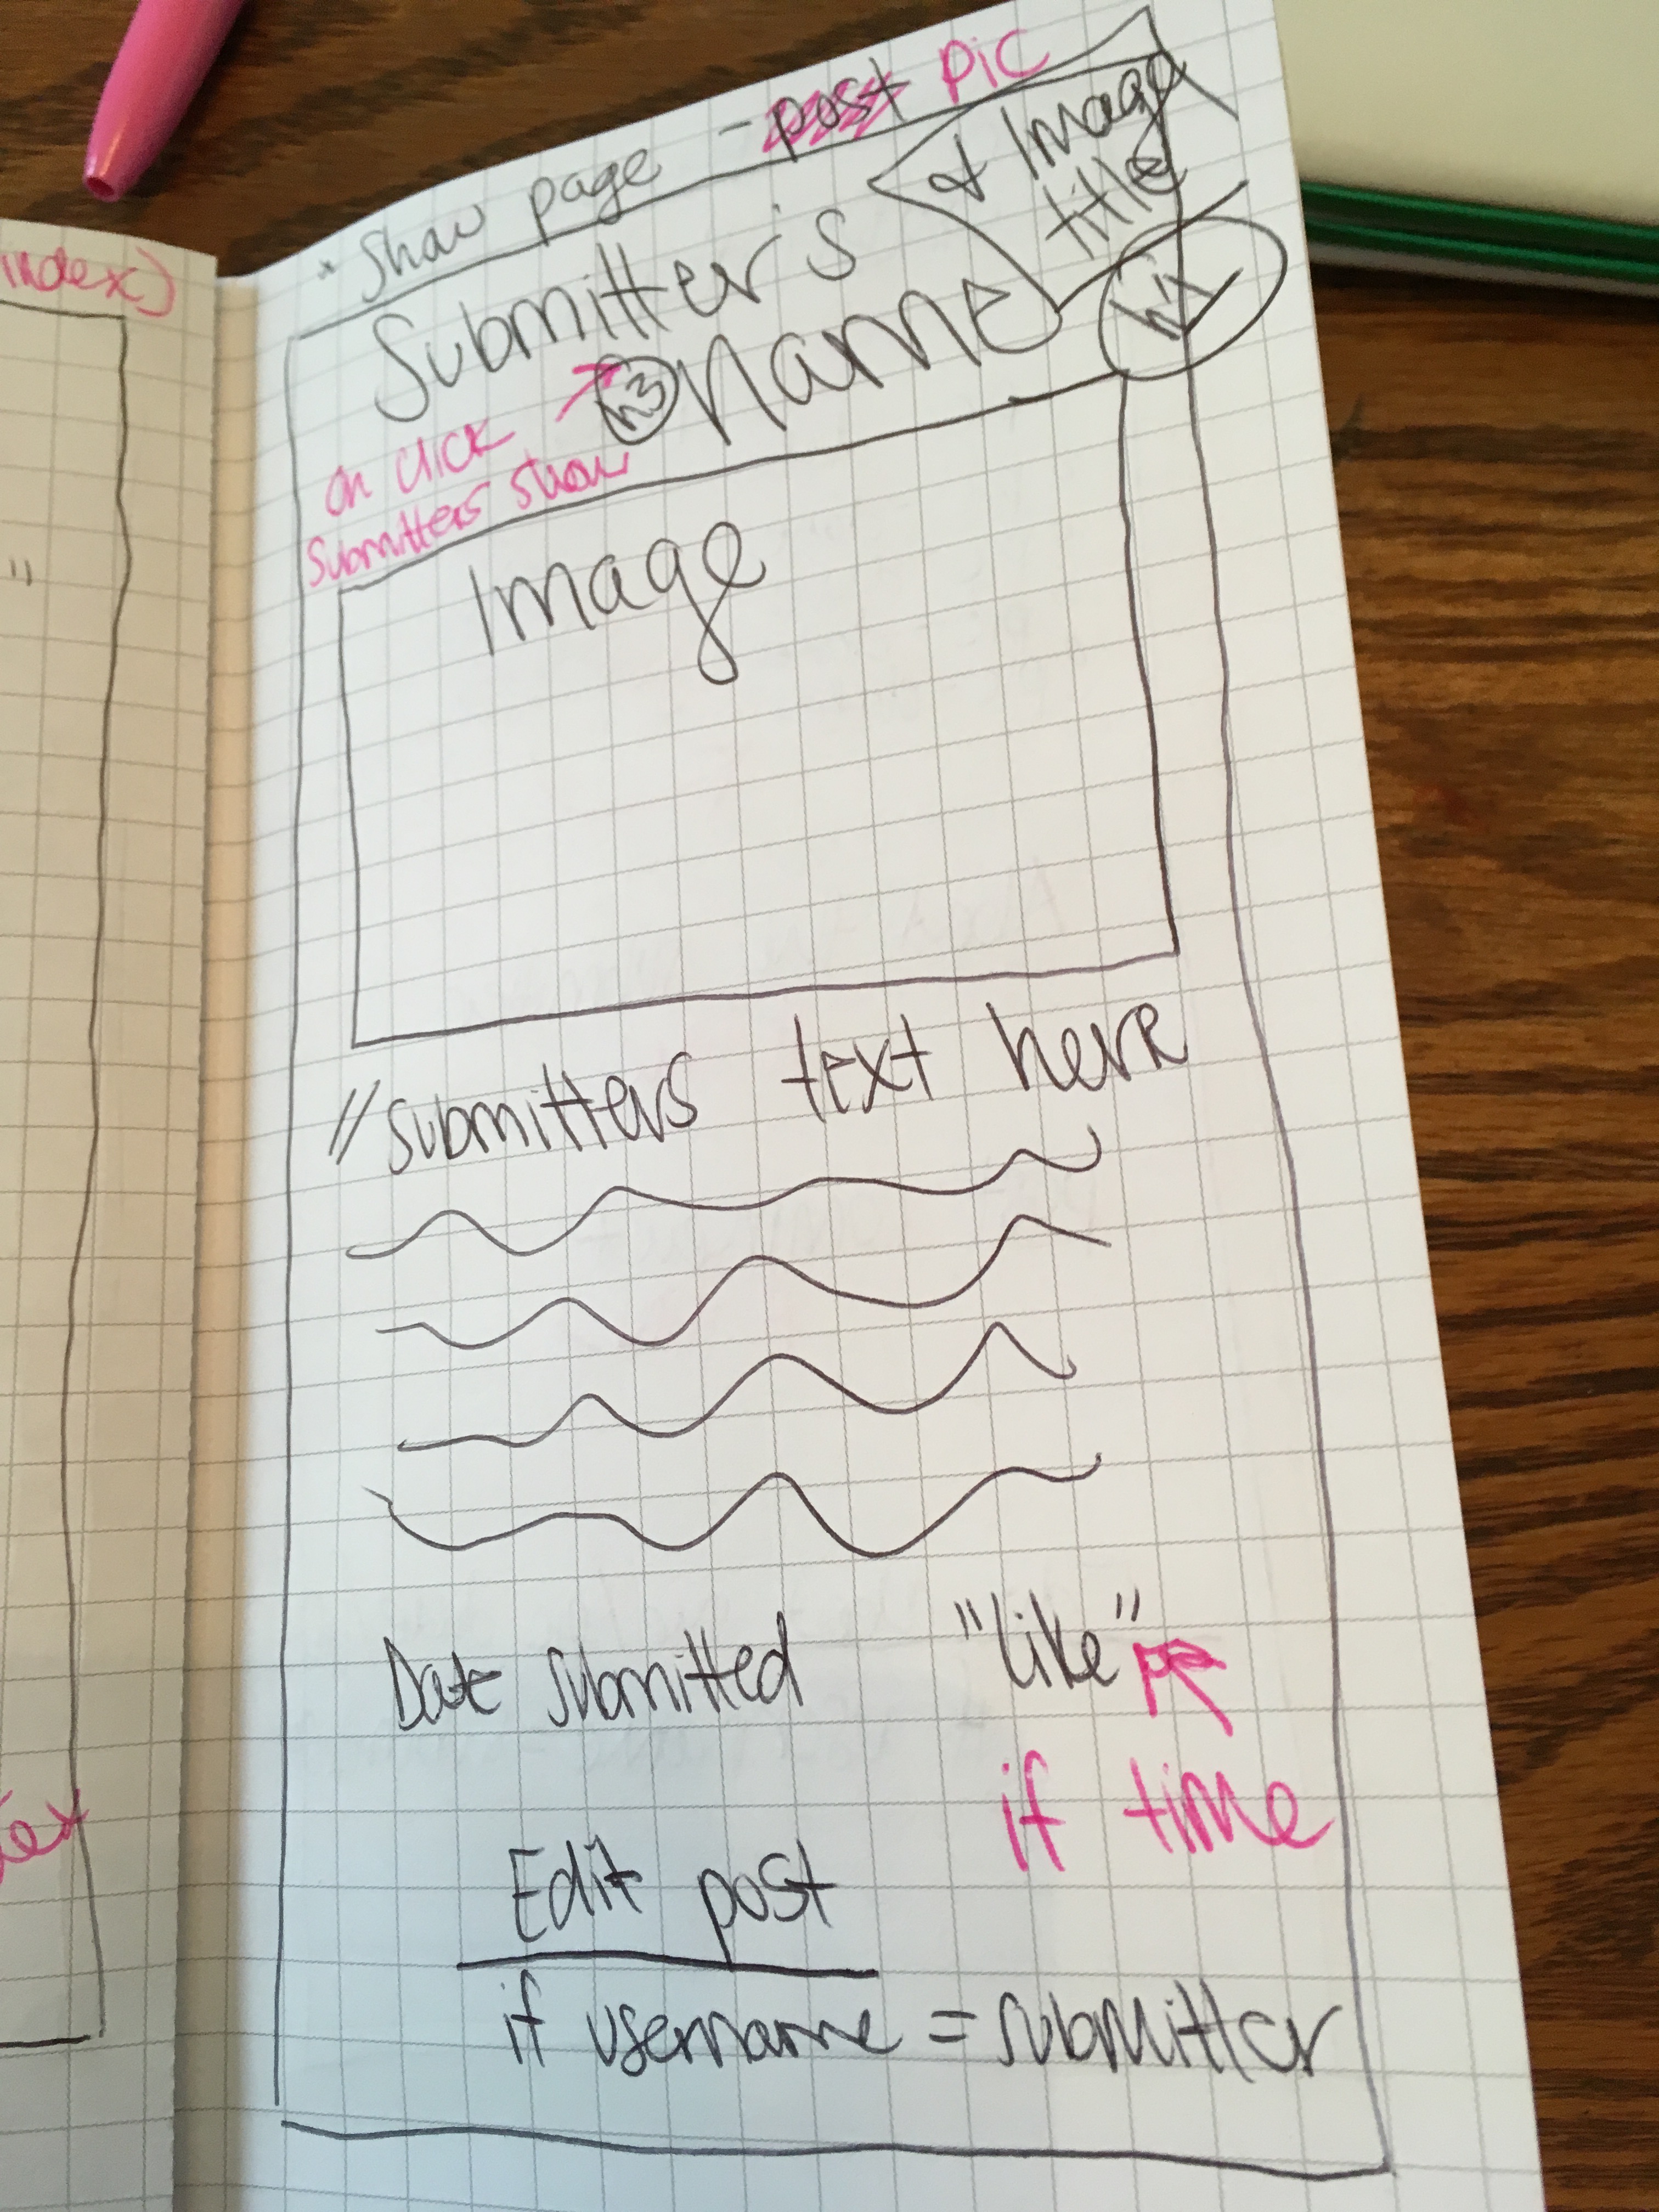 index)
"
* Show page - post pic
& Image
title
h1
Submitter's
h3 name
on click
submitters show
Image
// submitters text here
Date submitted "like"
if time
Edit post
if username = submitter